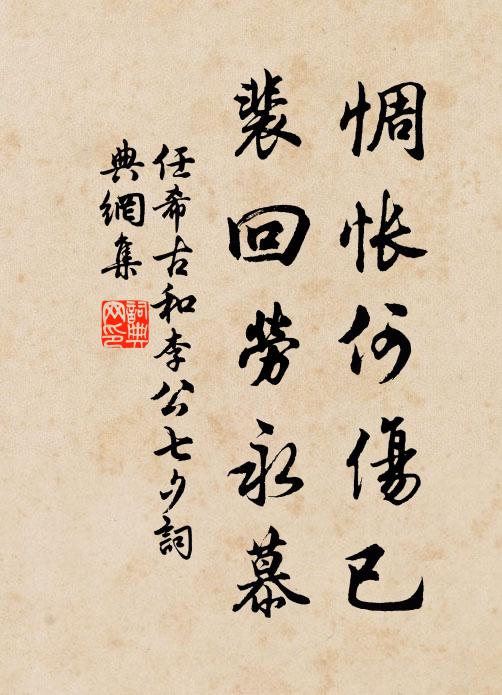 惆怅何傷已
裴回勞永慕
任希古和李公七夕詞
典網集
詞典网印